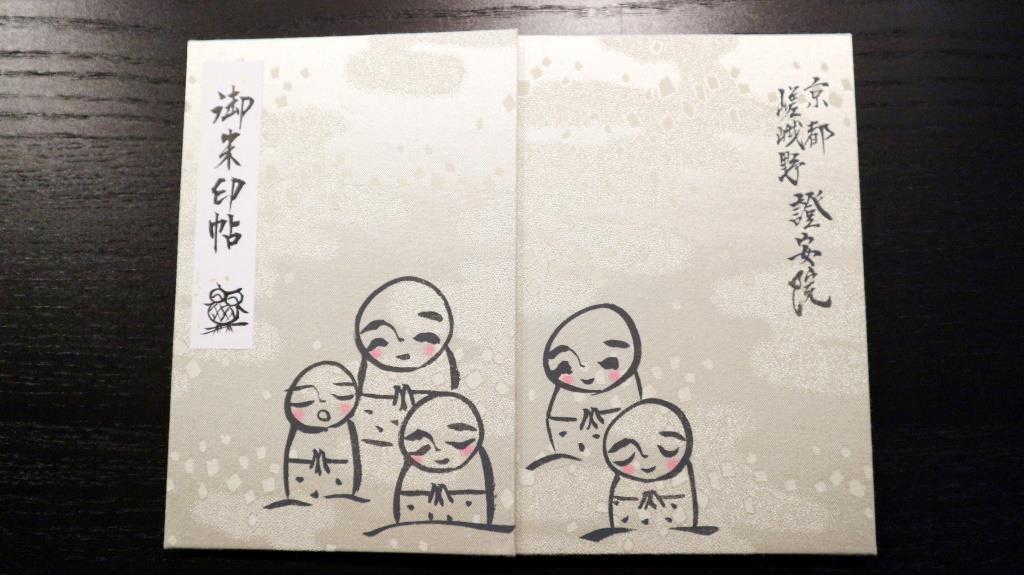 御朱印帖
京都
嵯峨野
證安院